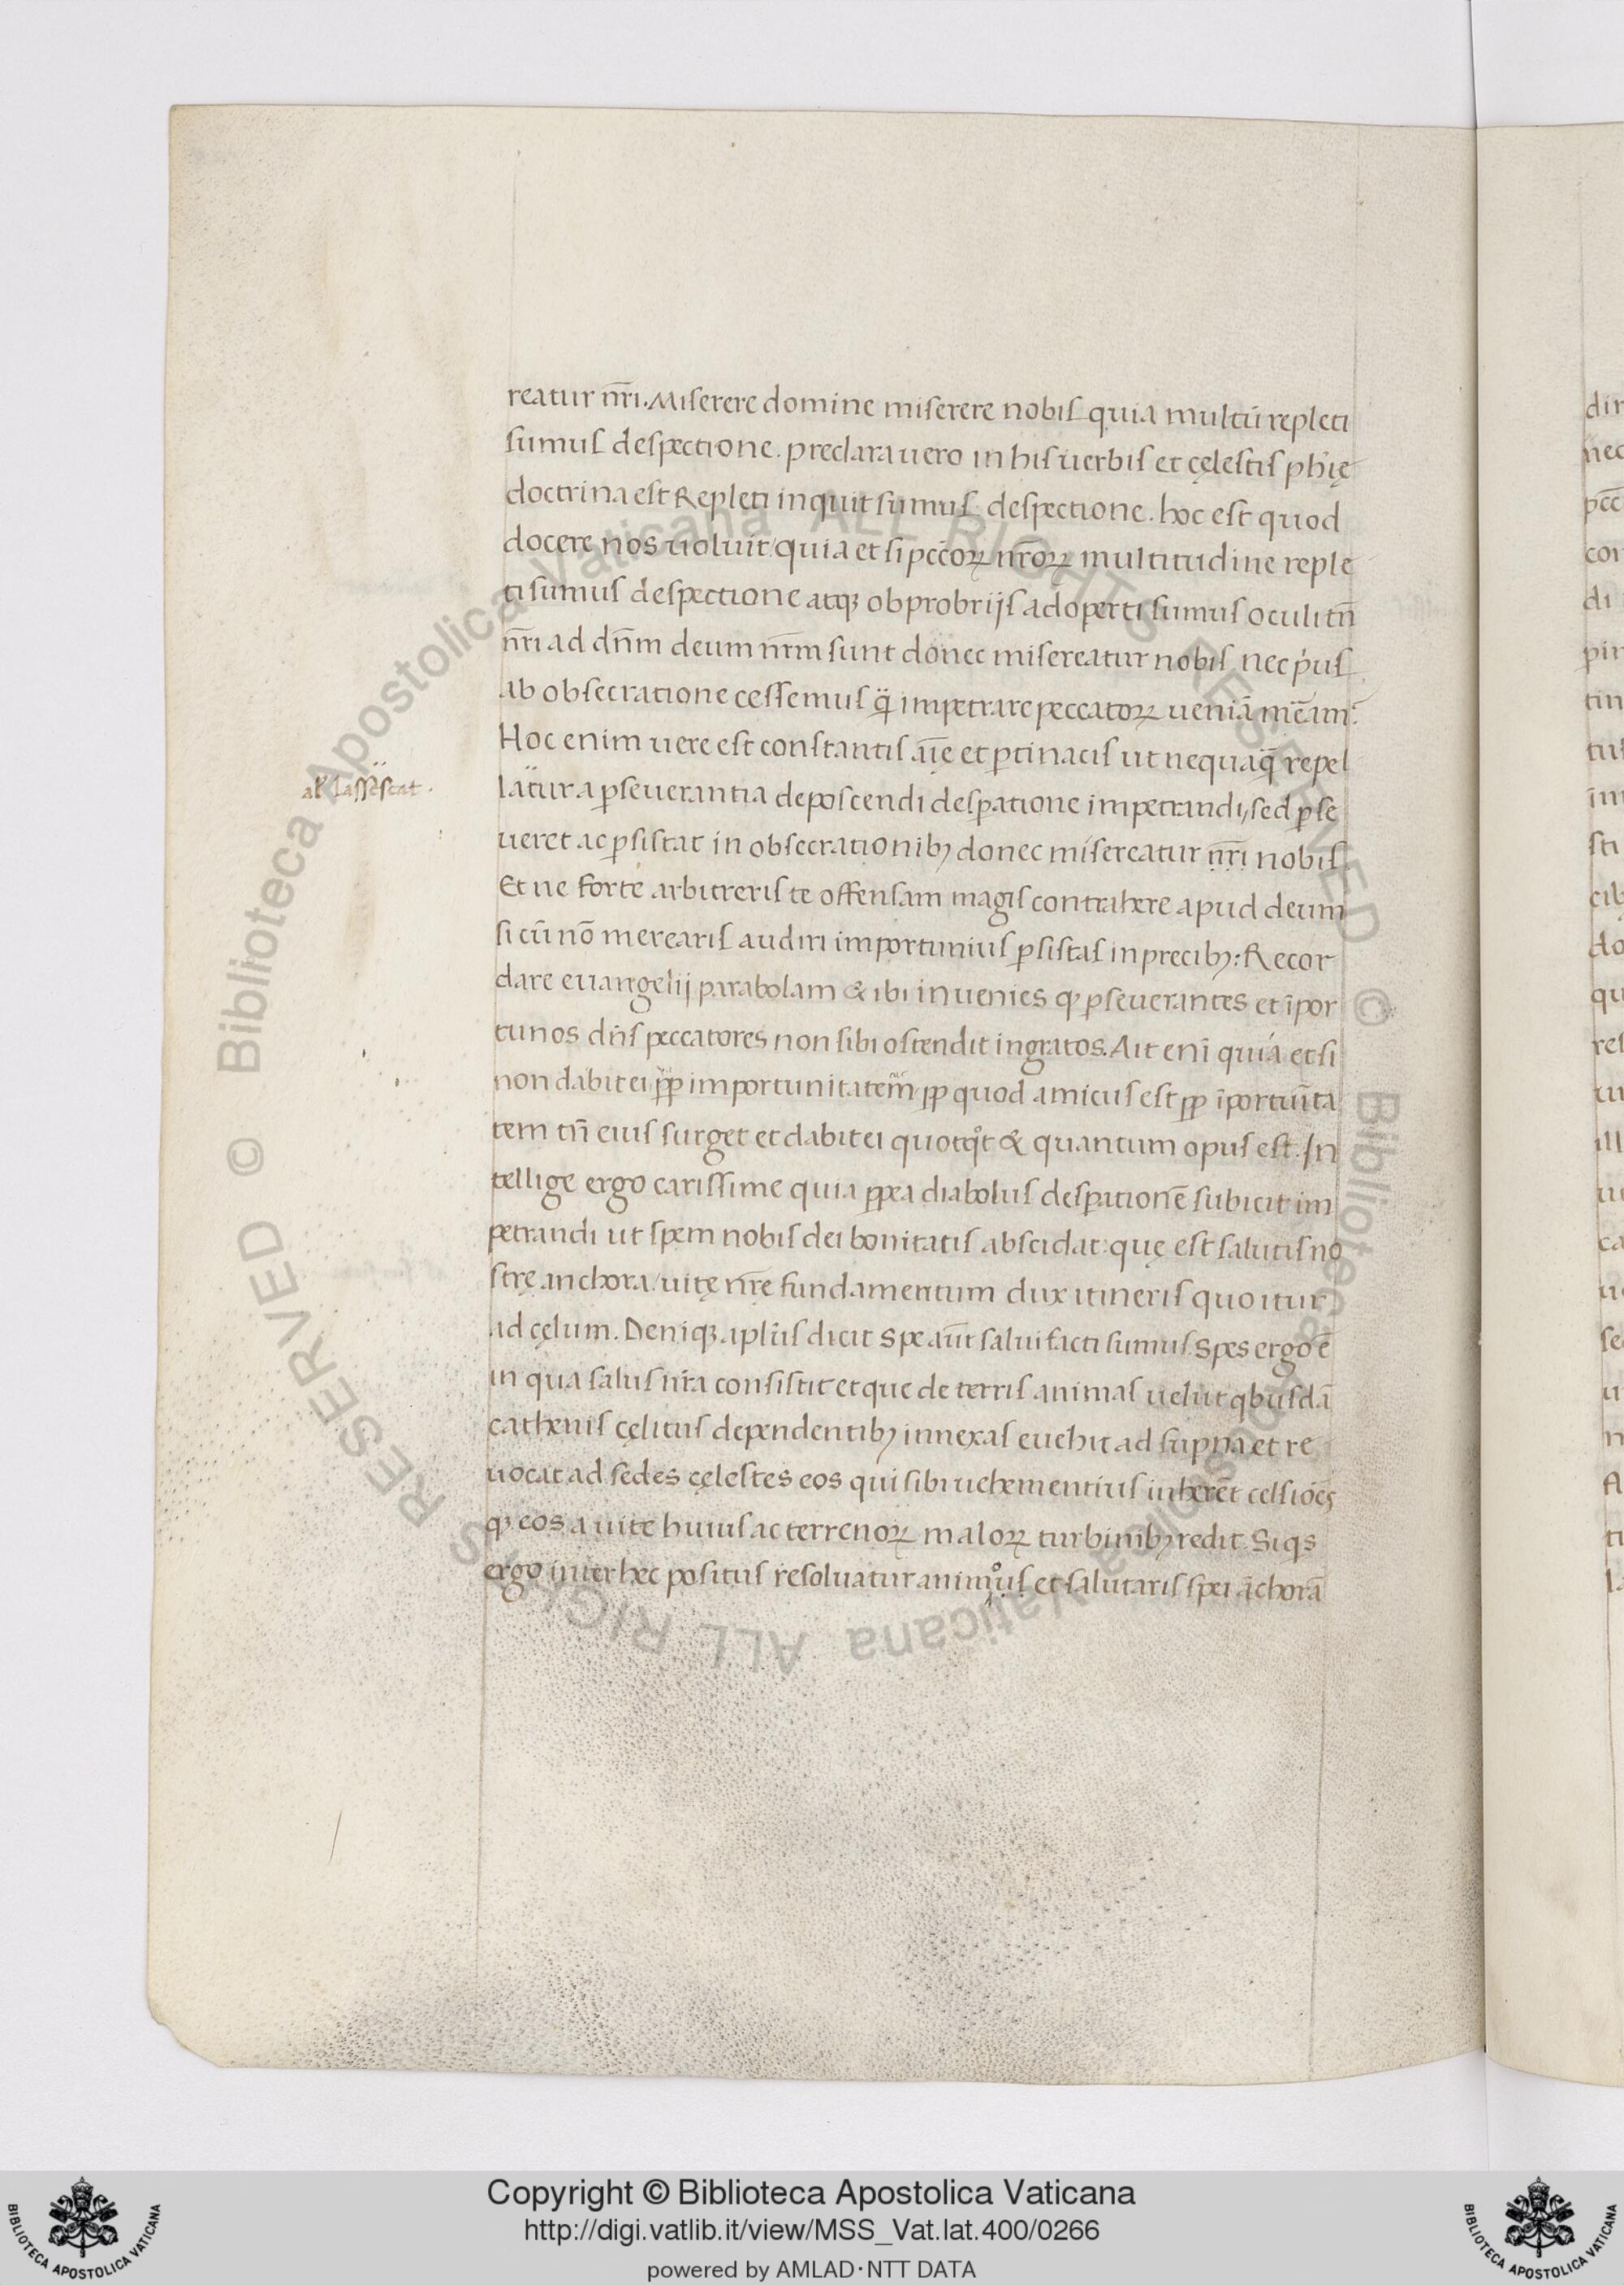 reatur nr̄i. Miserere domine miserere nobis quia multū repleti
sumus despectione. preclara uero in his uerbis et cęlestis ph̄ię
doctrina est Repleti inquit sumus despectione. hoc est quod
docere nos uoluit/quia et si pcc̄oꝝ nr̄oꝝ multitudine reple
ti sumus despectione atqꝫ obprobrijs adoperti sumus oculi tn̄
nr̄i ad dn̄m deum nr̄m sunt donec misereatur nobis nec p̍us
ab obsecratione cessemus impetrare peccatoꝝ ueniā
Hoc enim uere est constantis aīę et ꝑtinacis ut nequaq̄ repel
al̄ lassescat.
latur a ꝑseuerantia deposcendi desꝑatione impetrandi, sed ꝑse
ueret ac ꝑsistat in obsecrationibꝫ donec misereatur nr̄i nobis.
Et ne forte arbitreris te offensam magis contrahere apud deum
si cū nō merearis audiri importunius ꝑsistas in precibꝫ: Recor
dare euangelij parabolam & ibi inuenies qꝫ ꝑseuerantes et īpor
tunos dn̄s peccatores non sibi ostendit ingratos. Ait enī quia et si
non dabit ei ꝓp importunitatem ꝓp quod amicus est ꝓp īportunīta
tem tn̄ eius surget et dabit ei quotqͦt & quantum opus est. In
tellige ergo carissime quia ꝓpea diabolus desꝑationē subicit im
petrandi ut spem nobis dei bonitatis abscidat: quę est salutis no
strę anchora/uitę nr̄e fundamentum dux itineris quo itur
ad cęlum. Deniqꝫ apl̄us dicit Spe aūt salui facti sumus. Spes ergo ē
in qua salus nr̄a consistit et que de terris animas uelut qbusdā
cathenis cęlitus dependentibꝫ innexas euehit ad suꝑna et re
uocat ad sedes cęlestes eos qui sibi uehementius inherēt celsiōes
qꝫ eos a uite huius ac terrenoꝝ maloꝝ turbinibꝫ redit. Si qs
ergo inter hec positus resoluatur et salutaris spei āchorā
Copyright © Biblioteca Apostolica Vaticana
http://digi.vatlib.it/view/MSS_Vat.lat.400/0266
powered by AMLAD·NTT DATA